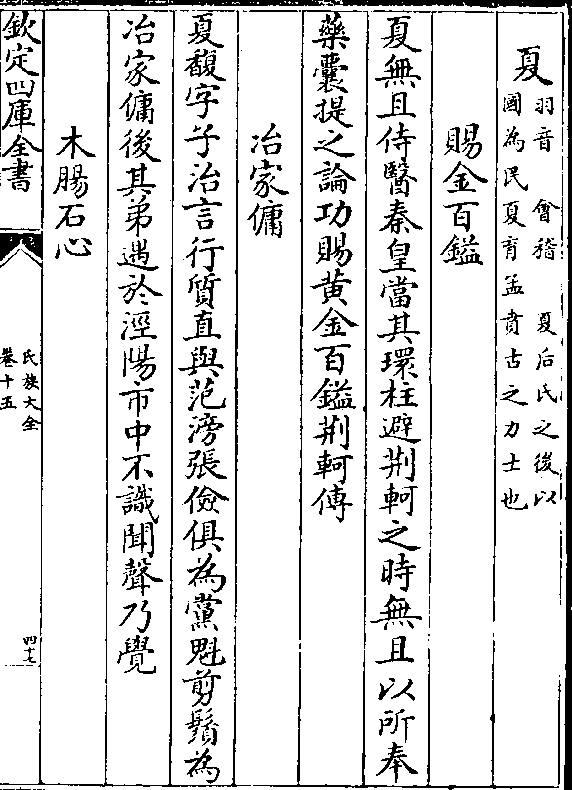 夏
羽音 會稽 夏后氏之後以
國為氏夏育孟賁古之力士也
賜金百鎰
夏無且侍醫秦皇當其環柱避荆軻之時無且以所奉
藥囊提之論功賜黄金百鎰荆軻傳
冶家傭
夏馥字子治言行質直與范滂張儉俱為黨魁剪鬚為
冶家傭後其弟遇於涇陽市中不識聞聲乃覺
木腸石心
欽定四庫全書
氏族大全
卷十五
四十七